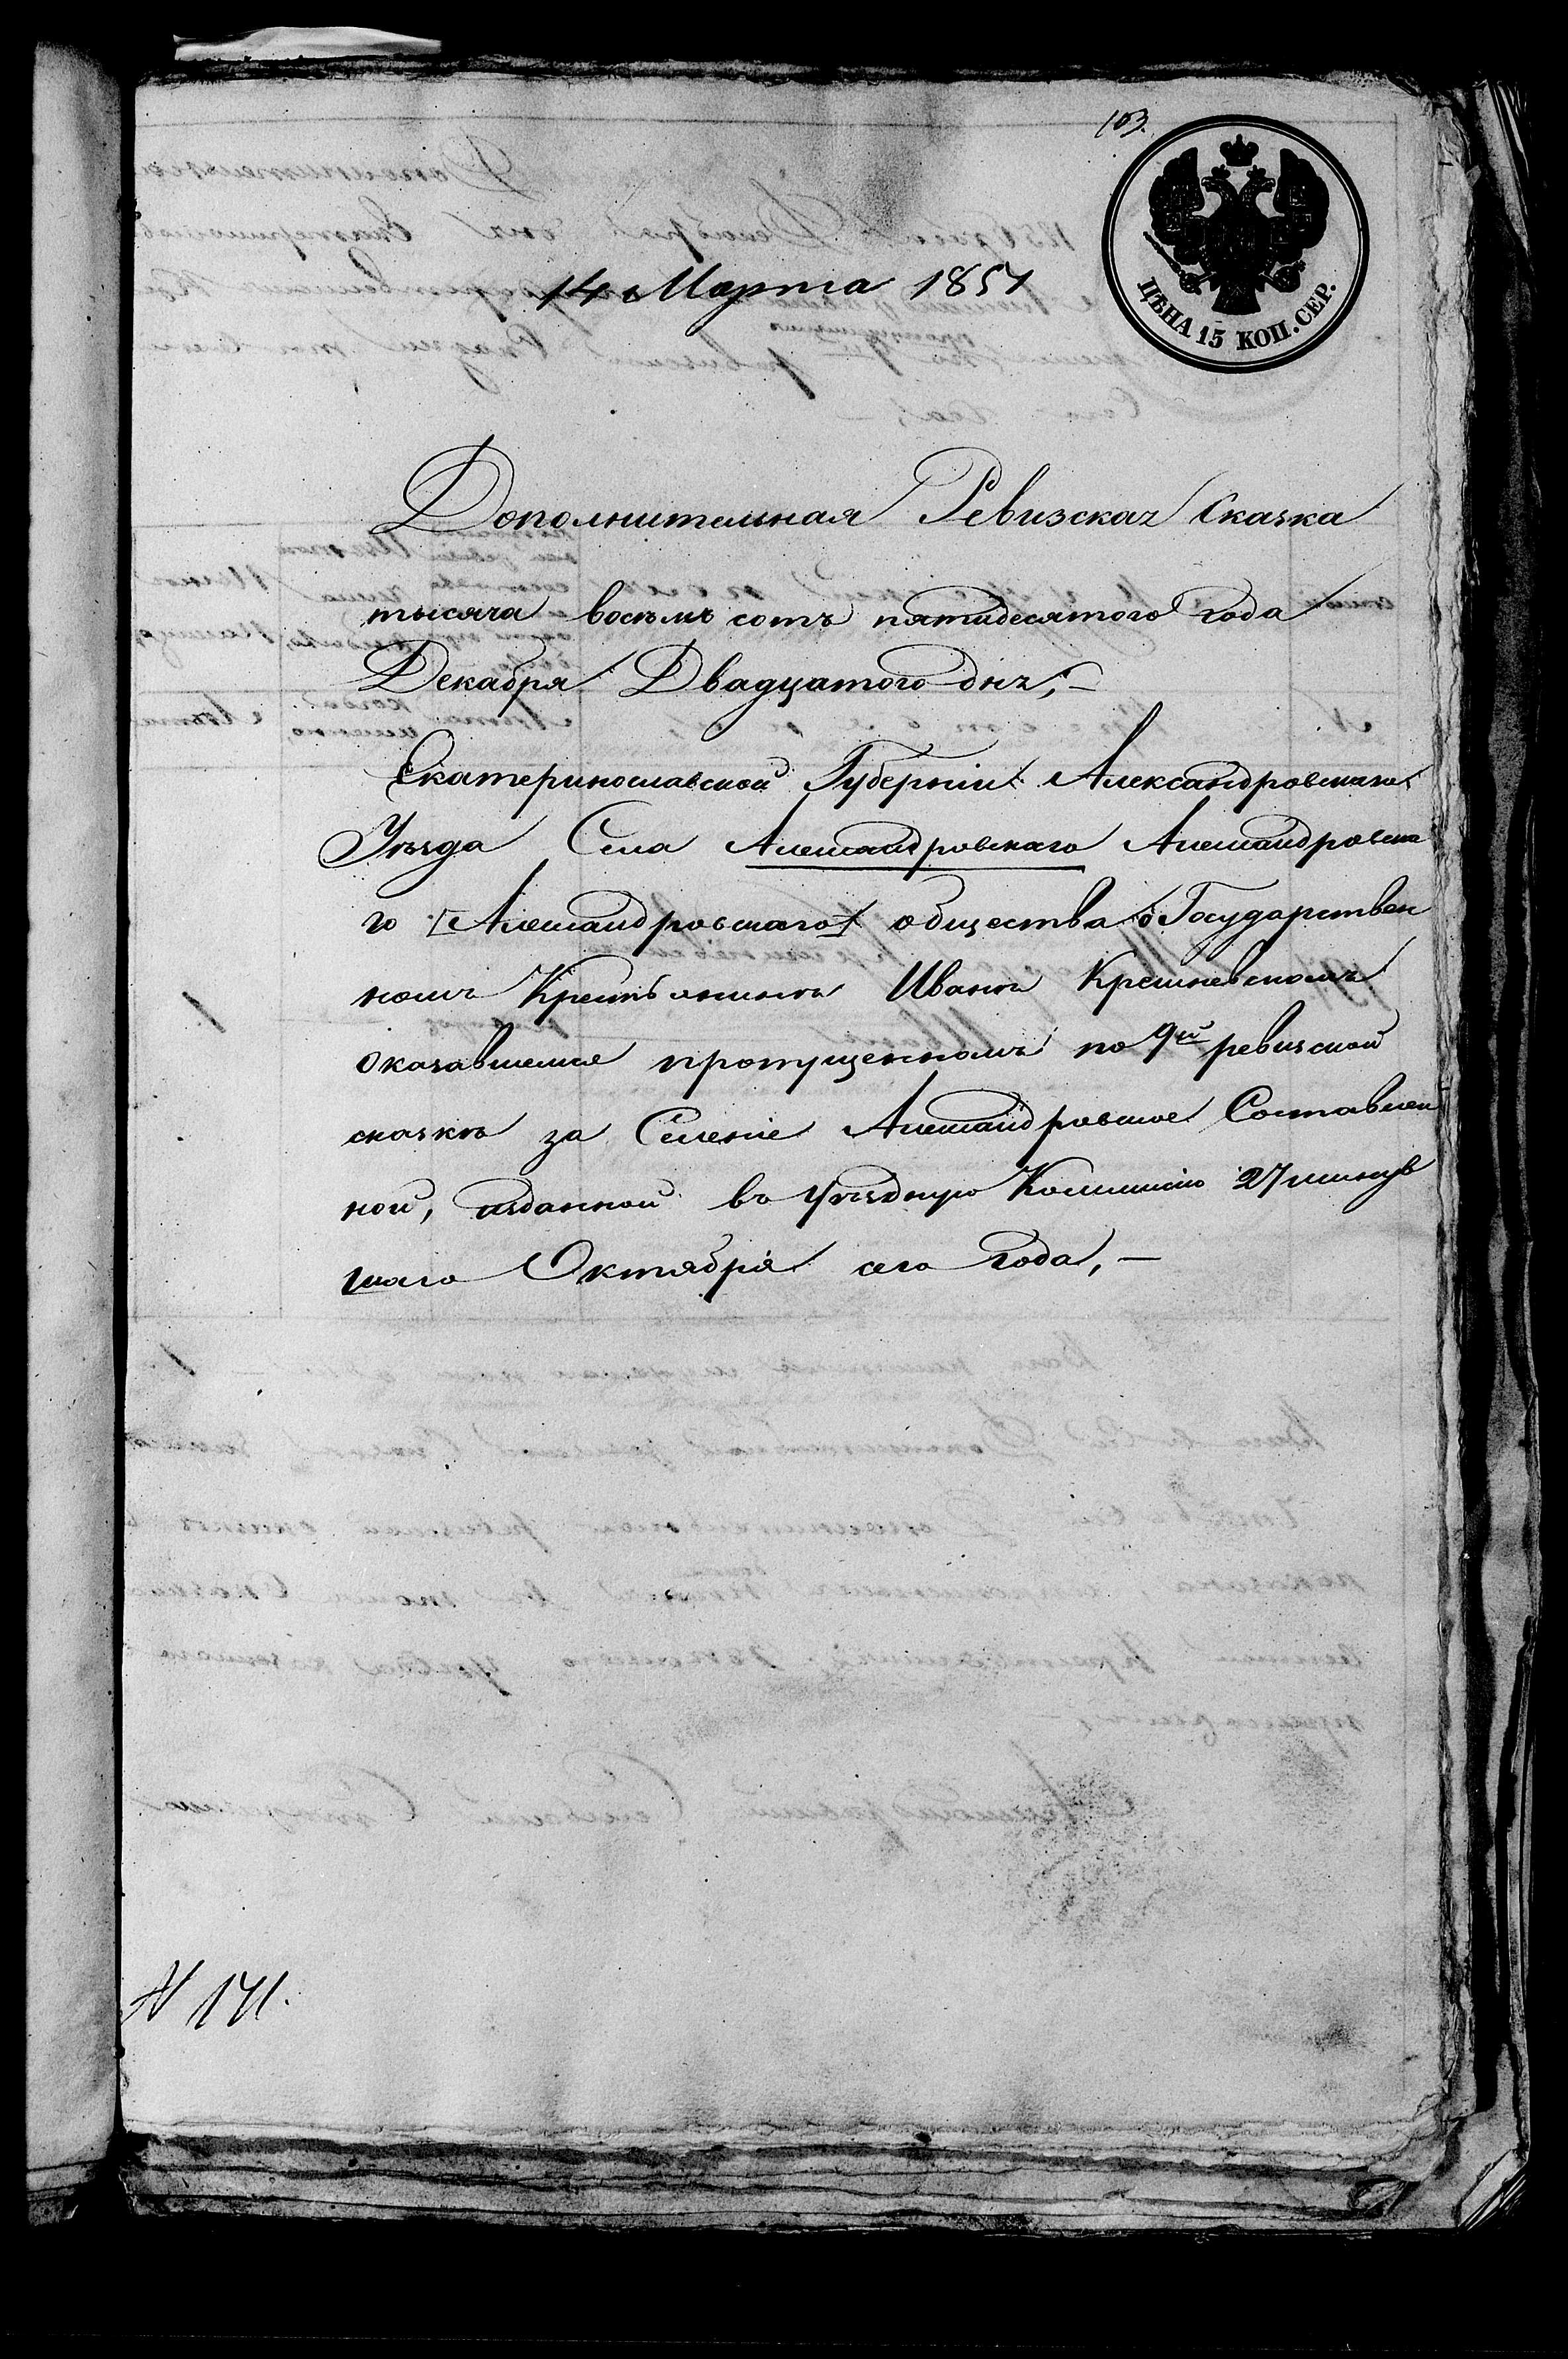 103.
ЦѢНА 15 КОП. СЕР.
14 Марта 1851
Дополнительная Ревизская Сказка
тысяча восѣмь сотъ пятидесятого года
Декабря Двадцатого дня,—
Екатеринославской Губерніи Александровскаго
Уѣзда Села Александровскаго Александровска
го [Александровскаго] общества о Государствен
номъ Крестьянинѣ Иванѣ
оказавшемся пропущеннымъ по 9й ревизской
сказкѣ за Селеніе Александровское Составлен
ной, изданной въ Уѣздную Коммисію 27 минув
шаго Октября сего года,—
N 141.